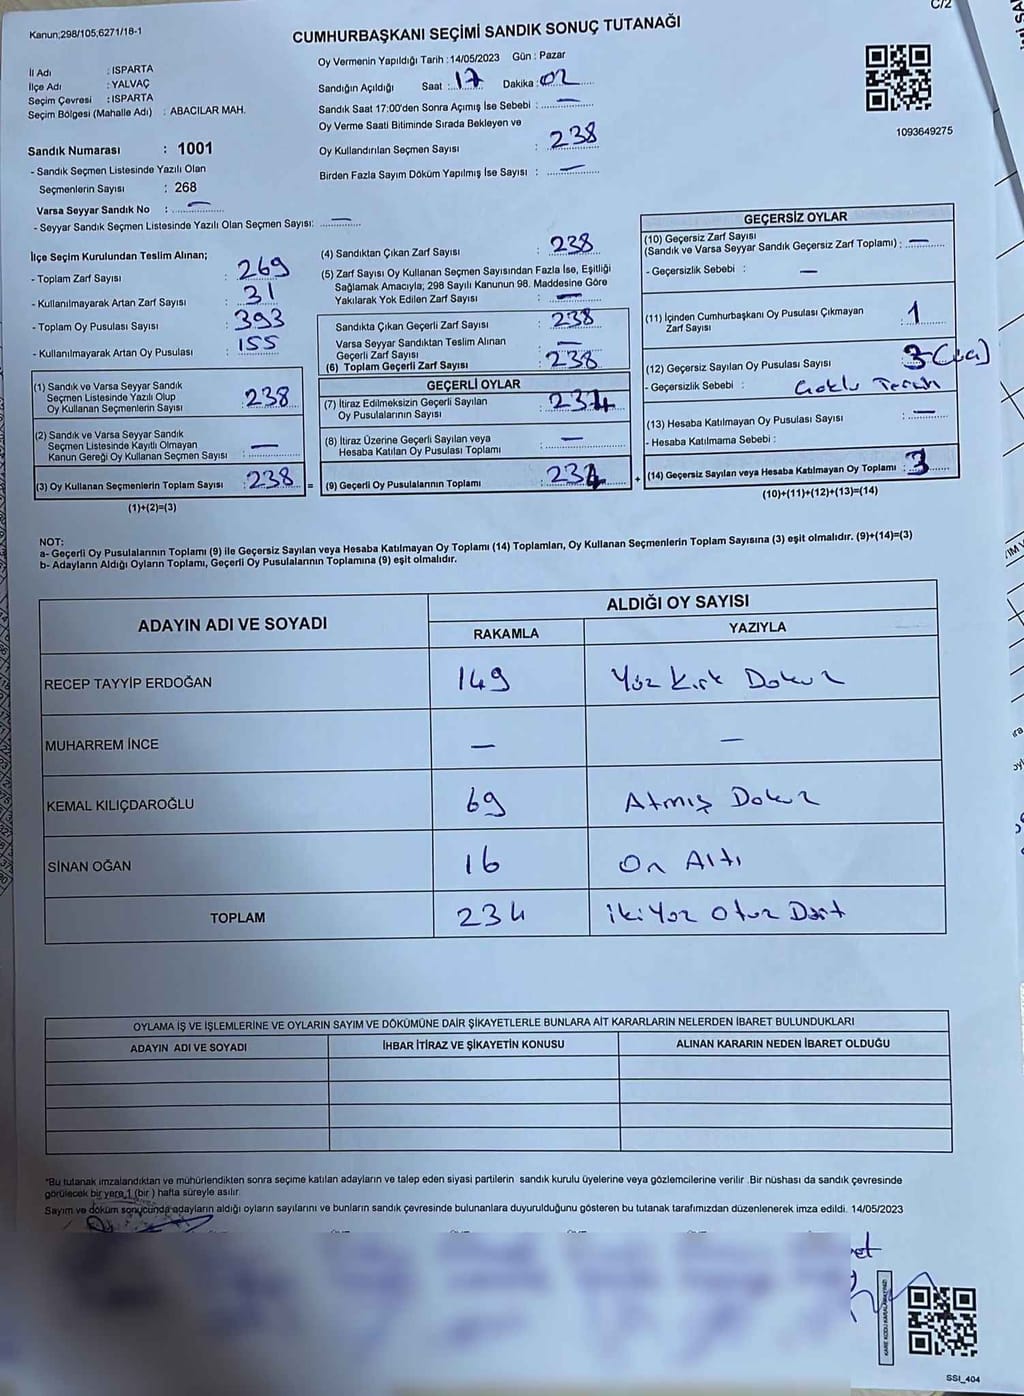 C/2
Kanun;298/105;6271/18-1
CUMHURBAŞKANI SEÇİMİ SANDIK SONUÇ TUTANAĞI
İl Adı : ISPARTA
İlçe Adı : YALVAÇ
Seçim Çevresi : ISPARTA
Seçim Bölgesi (Mahalle Adı) : ABACILAR MAH.
Sandık Numarası : 1001
- Sandık Seçmen Listesinde Yazılı Olan
Seçmenlerin Sayısı : 268
Varsa Seyyar Sandık No : —
- Seyyar Sandık Seçmen Listesinde Yazılı Olan Seçmen Sayısı: —
Oy Vermenin Yapıldığı Tarih : 14/05/2023 Gün : Pazar
Sandığın Açıldığı Saat : 17 Dakika : 02
Sandık Saat 17:00'den Sonra Açımış İse Sebebi : —
Oy Verme Saati Bitiminde Sırada Bekleyen ve
Oy Kullandırılan Seçmen Sayısı : 238
Birden Fazla Sayım Döküm Yapılmış İse Sayısı : —
1093649275
İlçe Seçim Kurulundan Teslim Alınan;
- Toplam Zarf Sayısı : 269
- Kullanılmayarak Artan Zarf Sayısı : 31
- Toplam Oy Pusulası Sayısı : 393
- Kullanılmayarak Artan Oy Pusulası : 155
(1) Sandık ve Varsa Seyyar Sandık
Seçmen Listesinde Yazılı Olup
Oy Kullanan Seçmenlerin Sayısı : 238
(2) Sandık ve Varsa Seyyar Sandık
Seçmen Listesinde Kayıtlı Olmayan
Kanun Gereği Oy Kullanan Seçmen Sayısı : —
(3) Oy Kullanan Seçmenlerin Toplam Sayısı : 238 =
(1)+(2)=(3)
(4) Sandıktan Çıkan Zarf Sayısı : 238
(5) Zarf Sayısı Oy Kullanan Seçmen Sayısından Fazla İse, Eşitliği
Sağlamak Amacıyla; 298 Sayılı Kanunun 98. Maddesine Göre
Yakılarak Yok Edilen Zarf Sayısı : —
Sandıkta Çıkan Geçerli Zarf Sayısı : 238
Varsa Seyyar Sandıktan Teslim Alınan
Geçerli Zarf Sayısı : —
(6) Toplam Geçerli Zarf Sayısı : 238
GEÇERLİ OYLAR
(7) İtiraz Edilmeksizin Geçerli Sayılan
Oy Pusulalarının Sayısı : 234
(8) İtiraz Üzerine Geçerli Sayılan veya
Hesaba Katılan Oy Pusulası Toplamı : —
(9) Geçerli Oy Pusulalarının Toplamı : 234 +
GEÇERSİZ OYLAR
(10) Geçersiz Zarf Sayısı
(Sandık ve Varsa Seyyar Sandık Geçersiz Zarf Toplamı) : —
- Geçersizlik Sebebi : —
(11) İçinden Cumhurbaşkanı Oy Pusulası Çıkmayan
Zarf Sayısı : 1
(12) Geçersiz Sayılan Oy Pusulası Sayısı : 3
- Geçersizlik Sebebi : Çoklu Tercih
(13) Hesaba Katılmayan Oy Pusulası Sayısı : —
- Hesaba Katılmama Sebebi :
(14) Geçersiz Sayılan veya Hesaba Katılmayan Oy Toplamı : 3
(10)+(11)+(12)+(13)=(14)
NOT:
a- Geçerli Oy Pusulalarının Toplamı (9) ile Geçersiz Sayılan veya Hesaba Katılmayan Oy Toplamı (14) Toplamları, Oy Kullanan Seçmenlerin Toplam Sayısına (3) eşit olmalıdır. (9)+(14)=(3)
b- Adayların Aldığı Oyların Toplamı, Geçerli Oy Pusulalarının Toplamına (9) eşit olmalıdır.
ADAYIN ADI VE SOYADI ALDIĞI OY SAYISI
RAKAMLA YAZIYLA
RECEP TAYYİP ERDOĞAN 149 Yüz Kırk Dokuz
MUHARREM İNCE — —
KEMAL KILIÇDAROĞLU 69 Atmış Dokuz
SİNAN OĞAN 16 On Altı
TOPLAM 234 İkiYüz Otuz Dört
OYLAMA İŞ VE İŞLEMLERİNE VE OYLARIN SAYIM VE DÖKÜMÜNE DAİR ŞİKAYETLERLE BUNLARA AİT KARARLARIN NELERDEN İBARET BULUNDUKLARI
ADAYIN ADI VE SOYADI İHBAR İTİRAZ VE ŞİKAYETİN KONUSU ALINAN KARARIN NEDEN İBARET OLDUĞU
*Bu tutanak imzalandıktan ve mühürlendikten sonra seçime katılan adayların ve talep eden siyasi partilerin sandık kurulu üyelerine veya gözlemcilerine verilir .Bir nüshası da sandık çevresinde
görülecek bir yere 1 (bir ) hafta süreyle asılır.
Sayım ve döküm sonucunda adayların aldığı oyların sayılarını ve bunların sandık çevresinde bulunanlara duyurulduğunu gösteren bu tutanak tarafımızdan düzenlenerek imza edildi. 14/05/2023
SSI_404